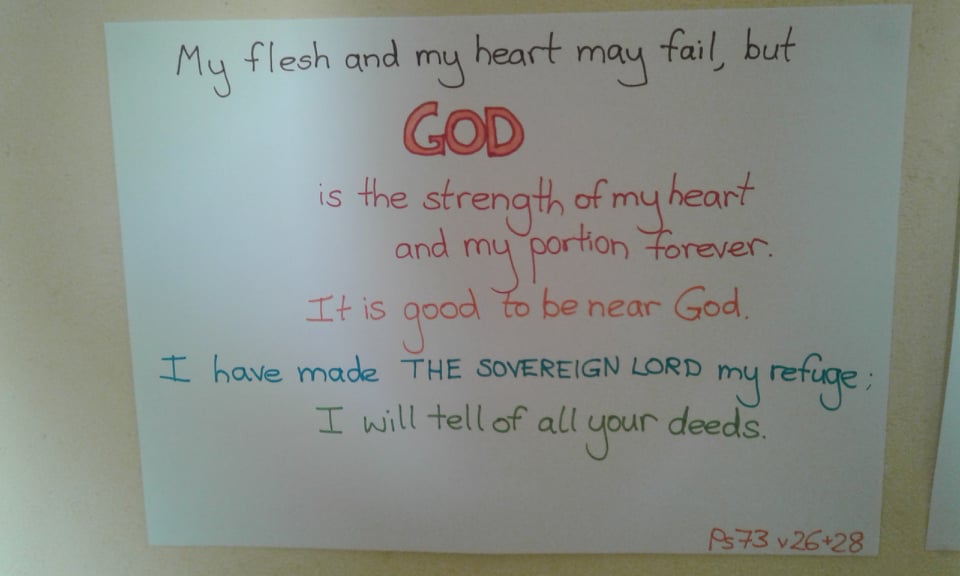 My flesh and my heart may fail, but
GOD
is the strength of my heart
and my portion forever.
It is good to be near God.
I have made THE SOVEREIGN LORD my refuge;
I will tell of all your deeds.
Ps73 v26+28